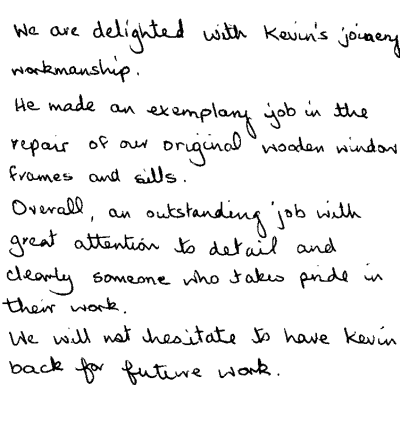 We are delighted with Kevin's joinery
workmanship.
He made an exemplary job in the
repair of our original wooden window
frames and sills.
Overall, an outstanding job with
great attention to detail and
clearly someone who takes pride in
their work.
We will not hesitate to have Kevin
back for future work.